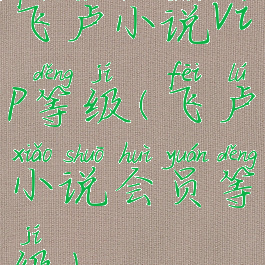 飞卢小说Vi
děng jí fēi lú
p等级(飞卢
xiǎo shuō huì yuán děng
小说会员等
jí
级)